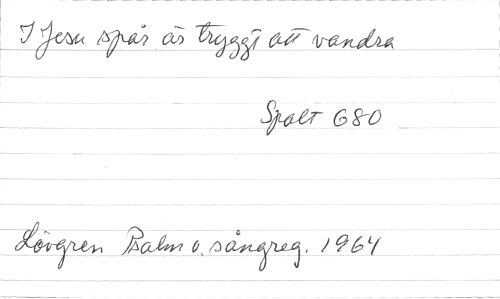 I Jesu spår är tryggt att vandra
Spalt 680
Lövgren Psalm o. sångreg. 1964